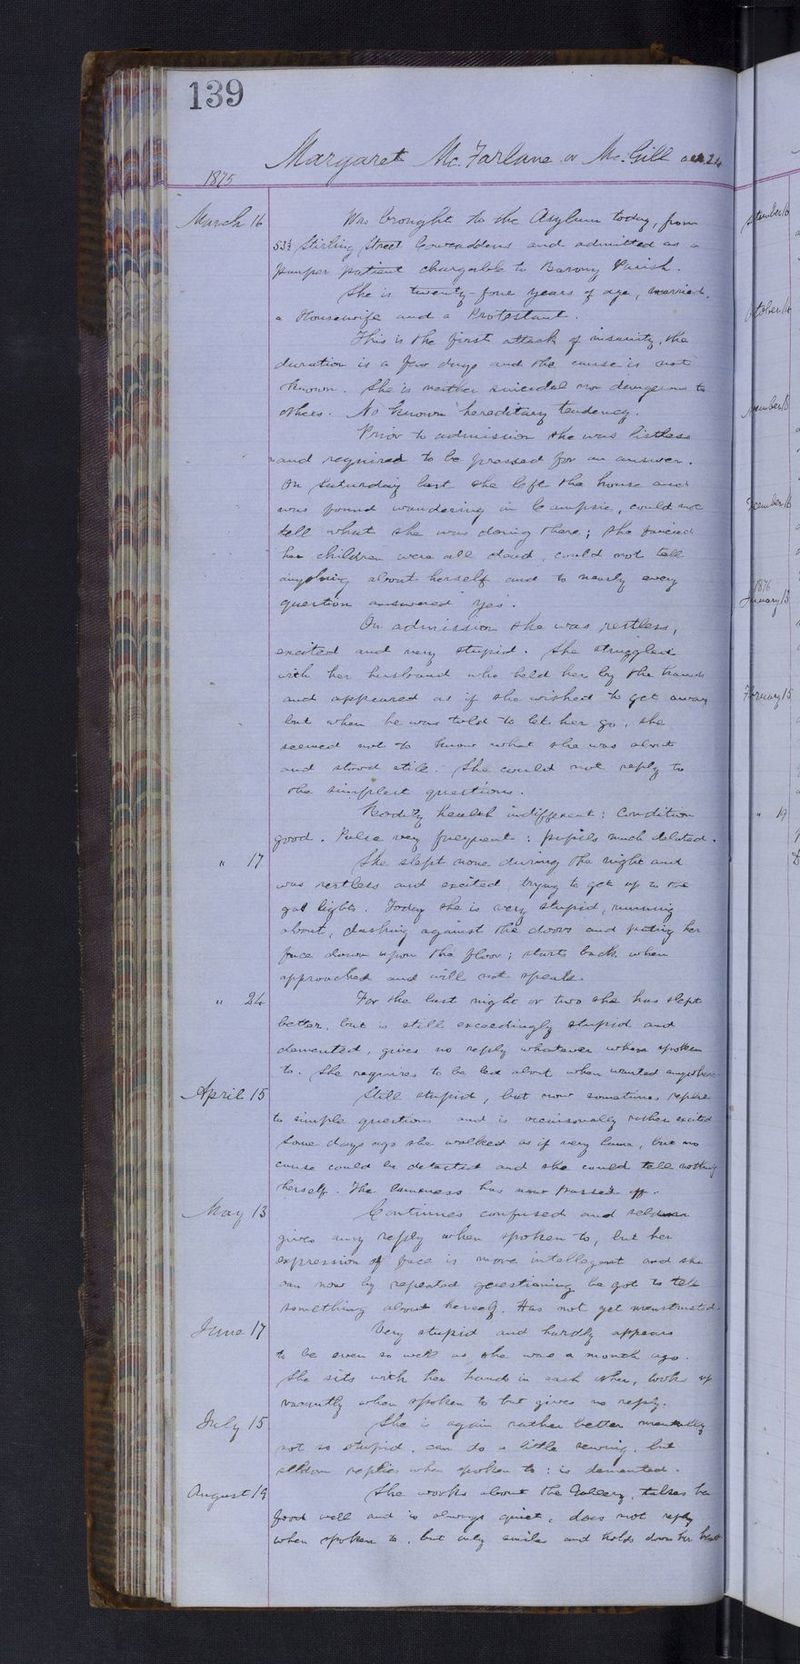 139
Margaret Mc. Farlane or Mc. Gill aet. 24
1875
March 16 Was brought to the Asylum today, from
53½ Stirling Street Cowcaddens and admitted as a
pauper patient chargable to Barony Parish.
She is twenty-four years of age, married,
a Housewife and a Protestant.
This is the first attack of insanity, the
duration is a few days and the cause is not
known. She is neither suicidal nor dangerous to
others. No known hereditary tendency.
Prior to admission she was listless
and required to be pressed for an answer.
On Saturday last she left the house and
was found wandering in Campsie, could not
tell what she was doing there; she fancied
her children were all dead, could not tell
anything about herself and to nearly every
question answered "yes".
On admission she was restless,
excited and very stupid. She struggled
with her husband who held her by the hands
and appeared as if she wished to get away
but when he was told to let her go, she
seemed not to know what she was about
and stood still. She could not reply to
the simplest questions.
Bodily health indifferent: Condition
good. Pulse very frequent: pupils much dilated.
" 17 She slept none during the night and
was restless and excited, trying to get up to the
gas lights. Today she is very stupid, running
about, dashing against the doors and putting her
face down upon the floor; starts back when
approached and will not speak.
" 24 For the last night or two she has slept
better, but is still exceedingly stupid and
demented, gives no reply whatever when spoken
to. She requires to be led about when wanted anywhere
April 15 Still stupid, but now sometimes replies
to simple questions and is occasionally rather excited
Some days ago she walked as if very lame, but no
cause could be detected and she could tell nothing
herself. The lameness has now passed off.
May 13 Continues confused and seldom
gives any reply when spoken to, but her
expression of face is more intelligent and she
can now by repeated questioning be got to tell
something about herself. Has not yet menstruated.
June 17 Very stupid and hardly appears
to be even so well as she was a month ago.
She sits with her hands in each other, looks up
vacantly when spoken to but gives no reply.
July 15 She is again rather better mentally
not so stupid, can do a little sewing, but
seldom replies when spoken to: is demented.
August 19 She works about the Gallery, takes her
food well and is always quiet, does not reply
when spoken to, but only smiles and holds down her head
October 16
1876
January 13
February 15
" 19